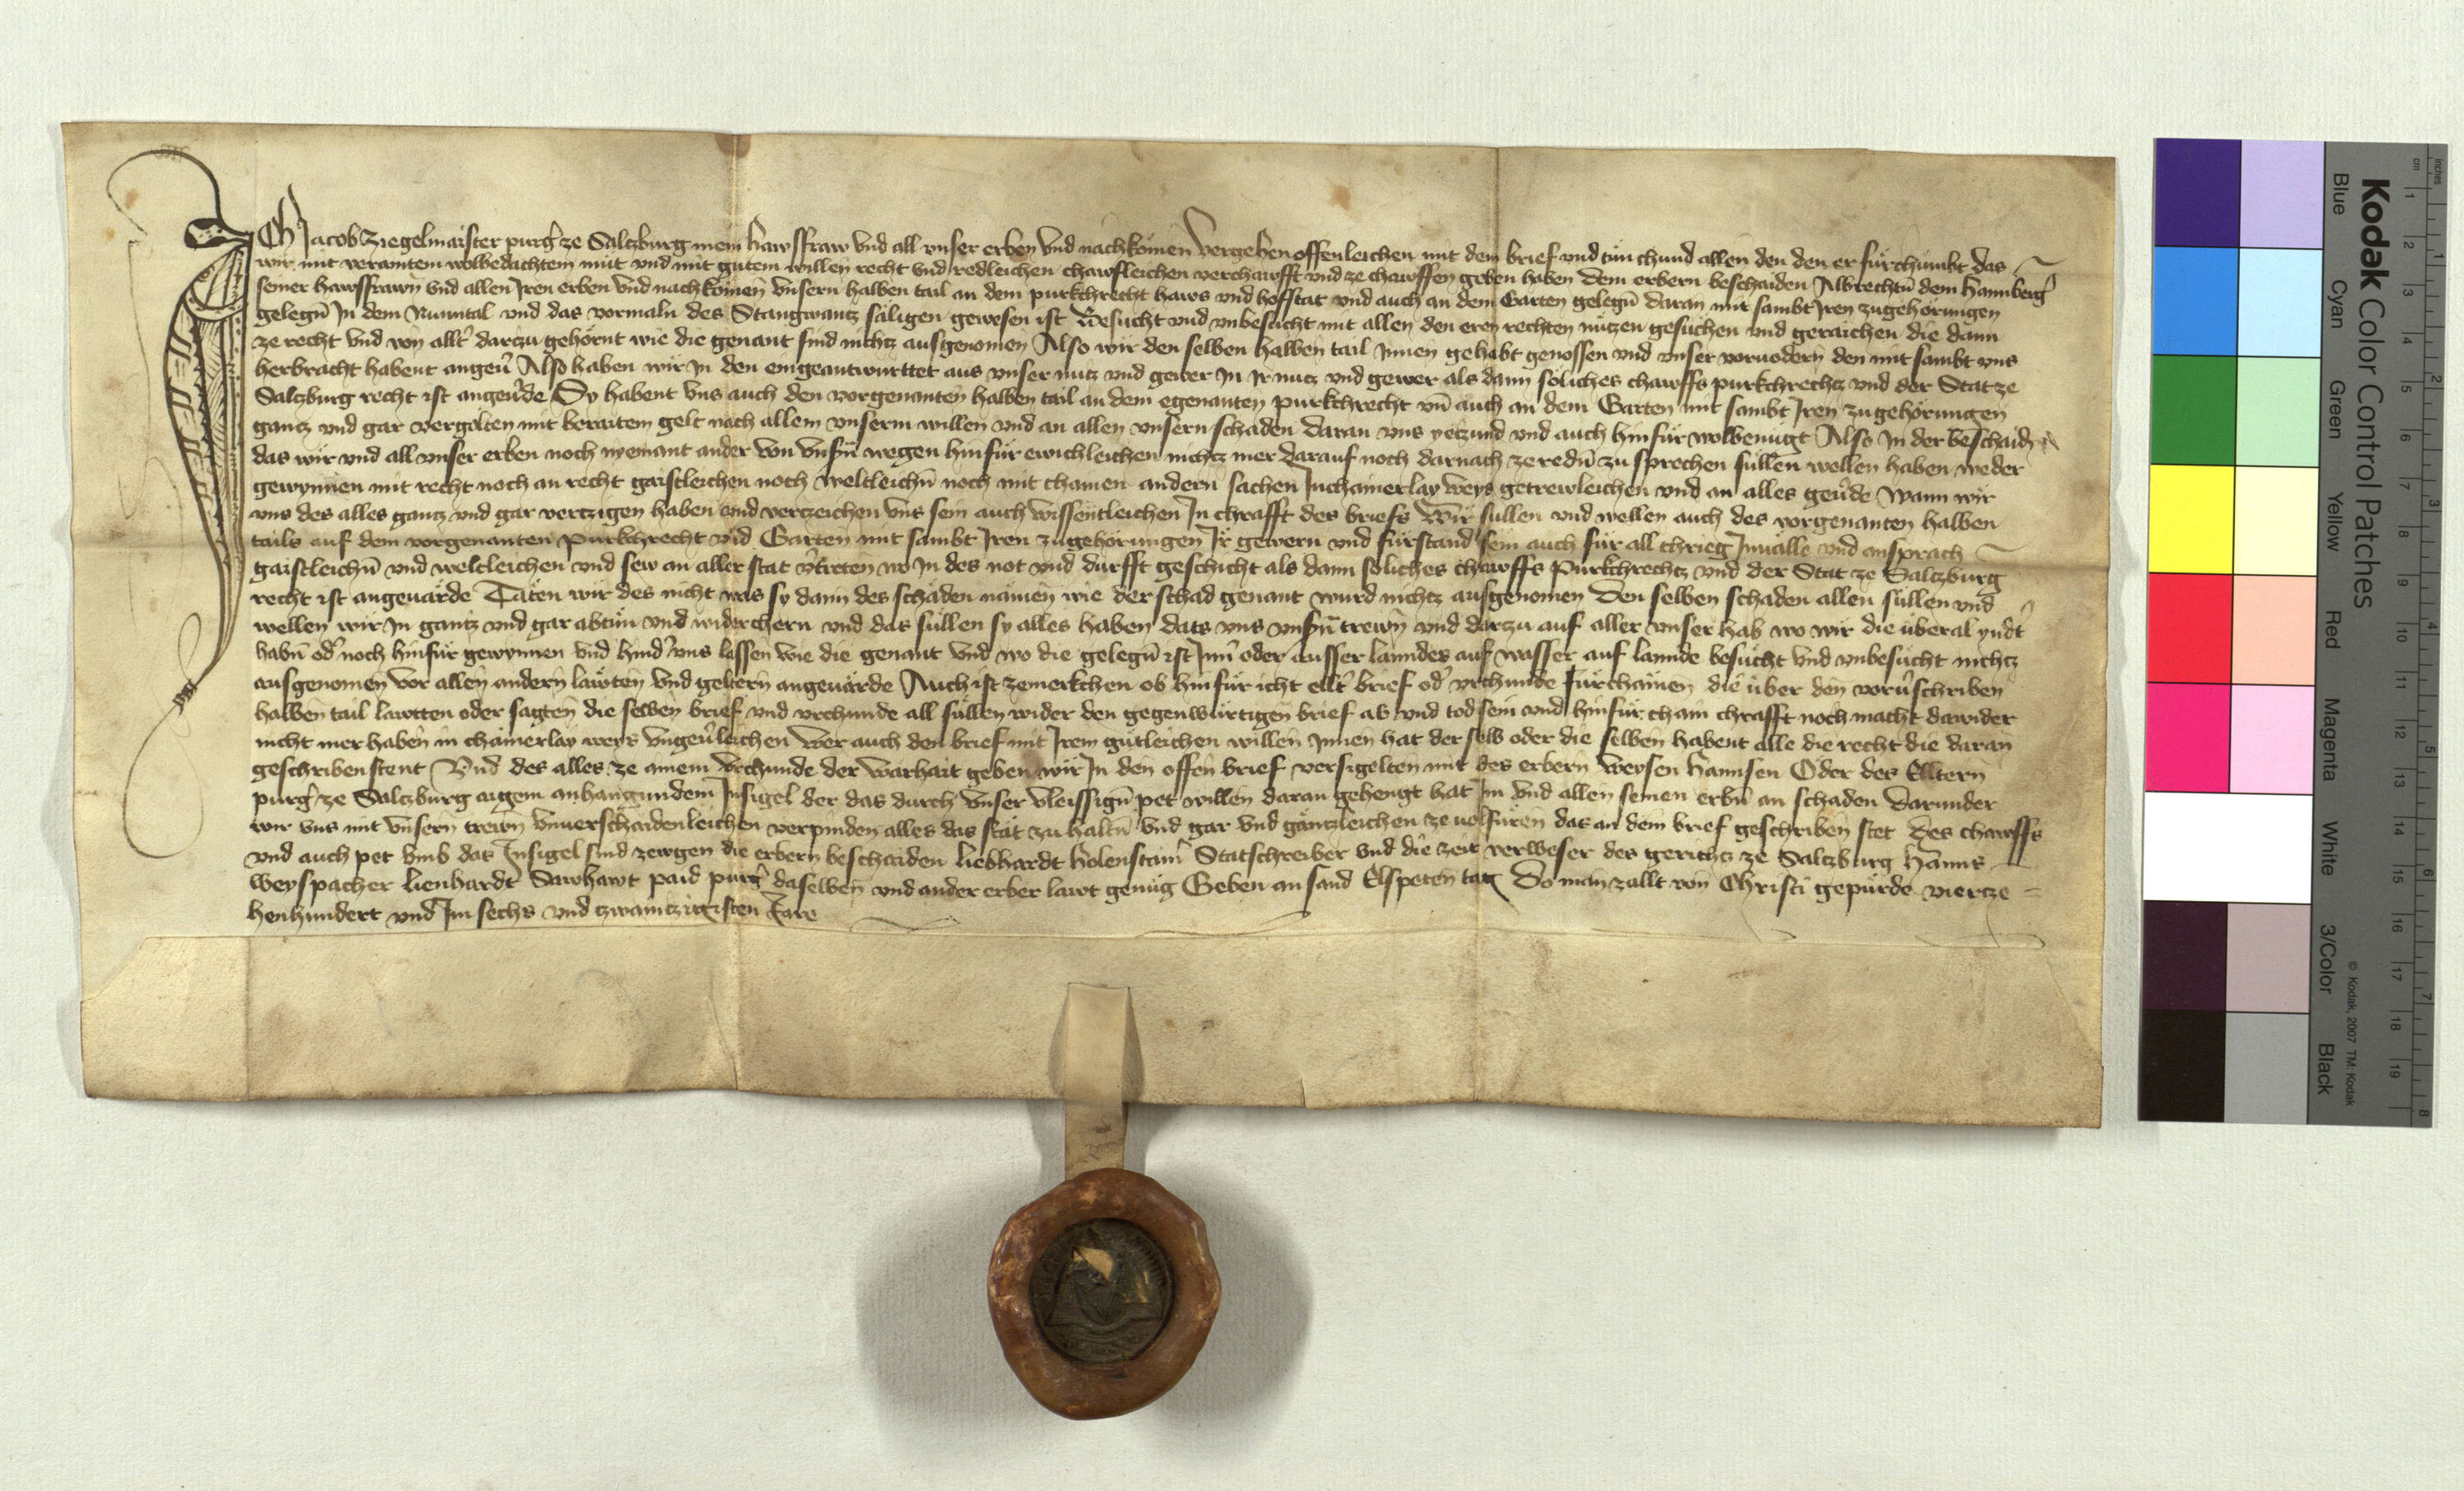 Ich Jacob Ziegelmaister purg̓ ze Salczburg mein hawsffraw vnd all vnser erben vnd nachkömen vergehen offenleichen mit dem brief vnd tün chund allen den den er fürchümbt das
wir mit veraintem wolbedachtem müt vnd mit gutem willen recht vnd redleichen chawfleichen verchawfft vnd ze chawffen geben haben dem erbern beschaiden Albrechtn̄ dem Hannberg̓
seiner hawsffrawn vnd allen Jren erben vnd nachkömen vnsern halben tail an dem purkchrecht haws vnd hoffstat vnd auch an dem Garten gelegn̄ daran mit sambt Jren zugehörungen
gelegn̄ Jn dem Nunntal vnd das vormaln des Stangwantz säligen gewesen ist Besücht vnd vnbesücht mit allen den eren rechten nützen gesüchen vnd geraichen die dann
ze recht vnd von allt̓ darczu gehörnt wie die genant sind nichtz ausgenomen Also wir den selben halben tail Jnnen gehabt genossen vnd vnser voruodern den mit sambt vns
herbracht habent angeu̓ Also haben wir Jn den eingeantwurttet aus vnser nutz vnd gewer Jn Jr nutz vnd gewer als dann söliches chawffs purkchrechtz vnd der Stat ze
Salczburg recht ist angeu̓de Sy habent vns auch den vorgenanten halben tail an dem egenanten purkchrecht vn̄ auch an dem Garten mit sambt Jren zugehörungen
gancz vnd gar vergolten mit beraitem gelt nach allem vnserm willen vnd an allen vnsern schaden daran vns yetzund vnd auch hinfür wolbenügt Also Jn der beschaidn̄
das wir vnd all vnser erben noch nyemant ander von vnsn̄ wegen hinfür ewichleichen nichtz mer darauf noch darnach ze redn̄ zu sprechen süllen wellen haben weder
gewynnen mit recht noch an recht gaistleichen noch weltleichn̄ noch mit chainen andern sachen Jnchainerlay weys getrewleichen vnd an alles geu̓de Wann wir
vns des alles gancz vnd gar vertzigen haben vnd vertzeichen vns sein auch wissentleichen Jn chrafft des briefs Wir süllen vnd wellen auch des vorgenanten halben
tails auf dem vorgenanten purkchrecht vnd Garten mit sambt Jren zugehörungen Jr gewern vnd fürstand sein auch für all chrieg Jnuälle vnd ansprach
gaistleichn̄ vnd weltleichen vnd sew an aller stat v̓treten wo Jn des not vnd dürfft geschicht als dann söliches chawffs purkchrechtz vnd der Stat ze Salczburg
recht ist angeuärde Täten wir des nicht was sy dann des schaden nämen wie der schad genant wurd nichtz ausgenomen den selben schaden allen süllen vnd
wellen wir Jn gantz vnd gar abtün vnd widerchern vnd das süllen sy alles haben dats vns vnsn̄ trewn̄ vnd darzu auf aller vnser hab wo wir die überal yndt̓
habn̄ od̓ noch hinfür gewynnen vnd hind̓ vns lassen wie die genant vnd wo die gelegn̄ ist Jnn̓ oder ausser lanndes auf wasser auf lannde besücht vnd vnbesücht nichtz
ausgenomen vor allen andern läwten vnd geltern angeuärde Auch ist zemerkchen ob hinfür icht ellt̓ brief od̓ vrchunde fürchämen die über den voru̓schriben
halben tail lawtten oder sagten die selben brief vnd vrchunde all süllen wider den gegenwürtigen brief ab vnd tod sein vnd hinfür chain chrafft noch macht dawider
nicht mer haben in chainerlay weys vngeu̓leichen Wer auch den brief mit Jrem gütleichen willen Jnnen hat der selb oder die selben habent alle die recht die daran
geschriben stent Vnd des alles ze ainem vrchunde der warhait geben wir Jn den offen brief versigelten mit des erbern weysen Hannsen Oder des Elltern
purg̓ ze Salczburg aigem anhangundem Jnsigel der das durch vnser vleissign̄ pet willen daran gehengt hat Jm vnd allen seinen erbn̄ an schaden Darunder
wir vns mit vnsern trewn̄ vnuerschaidenleichen verpinden alles das stät zu haltn̄ vnd gar vnd gäntzleichen ze uolfüren das an dem brief geschriben stet Des chawffs
vnd auch pet vmb das Jnsigel sind zewgen die erbern beschaiden Liebhardt Holenstain̓ Statschreiber vnd die zeit verweser des gerichtz ze Salczburg Hanns
Weyspacher Lienhardt Sawhawt paid purg̓ daselben vnd ander erber lawt genüg Geben an sand Elspeten tag Do man zallt von Christi gepürde viertze
henhundert vnd Jm sechs vnd zwaintzigisten Jare
Kodak Color Control Patches
© Kodak, 2007 TM: Kodak
Blue Cyan Green Yellow Red Magenta White 3/Color Black
inches 1 2 3 4 5 6 7 8
cm 1 2 3 4 5 6 7 8 9 10 11 12 13 14 15 16 17 18 19